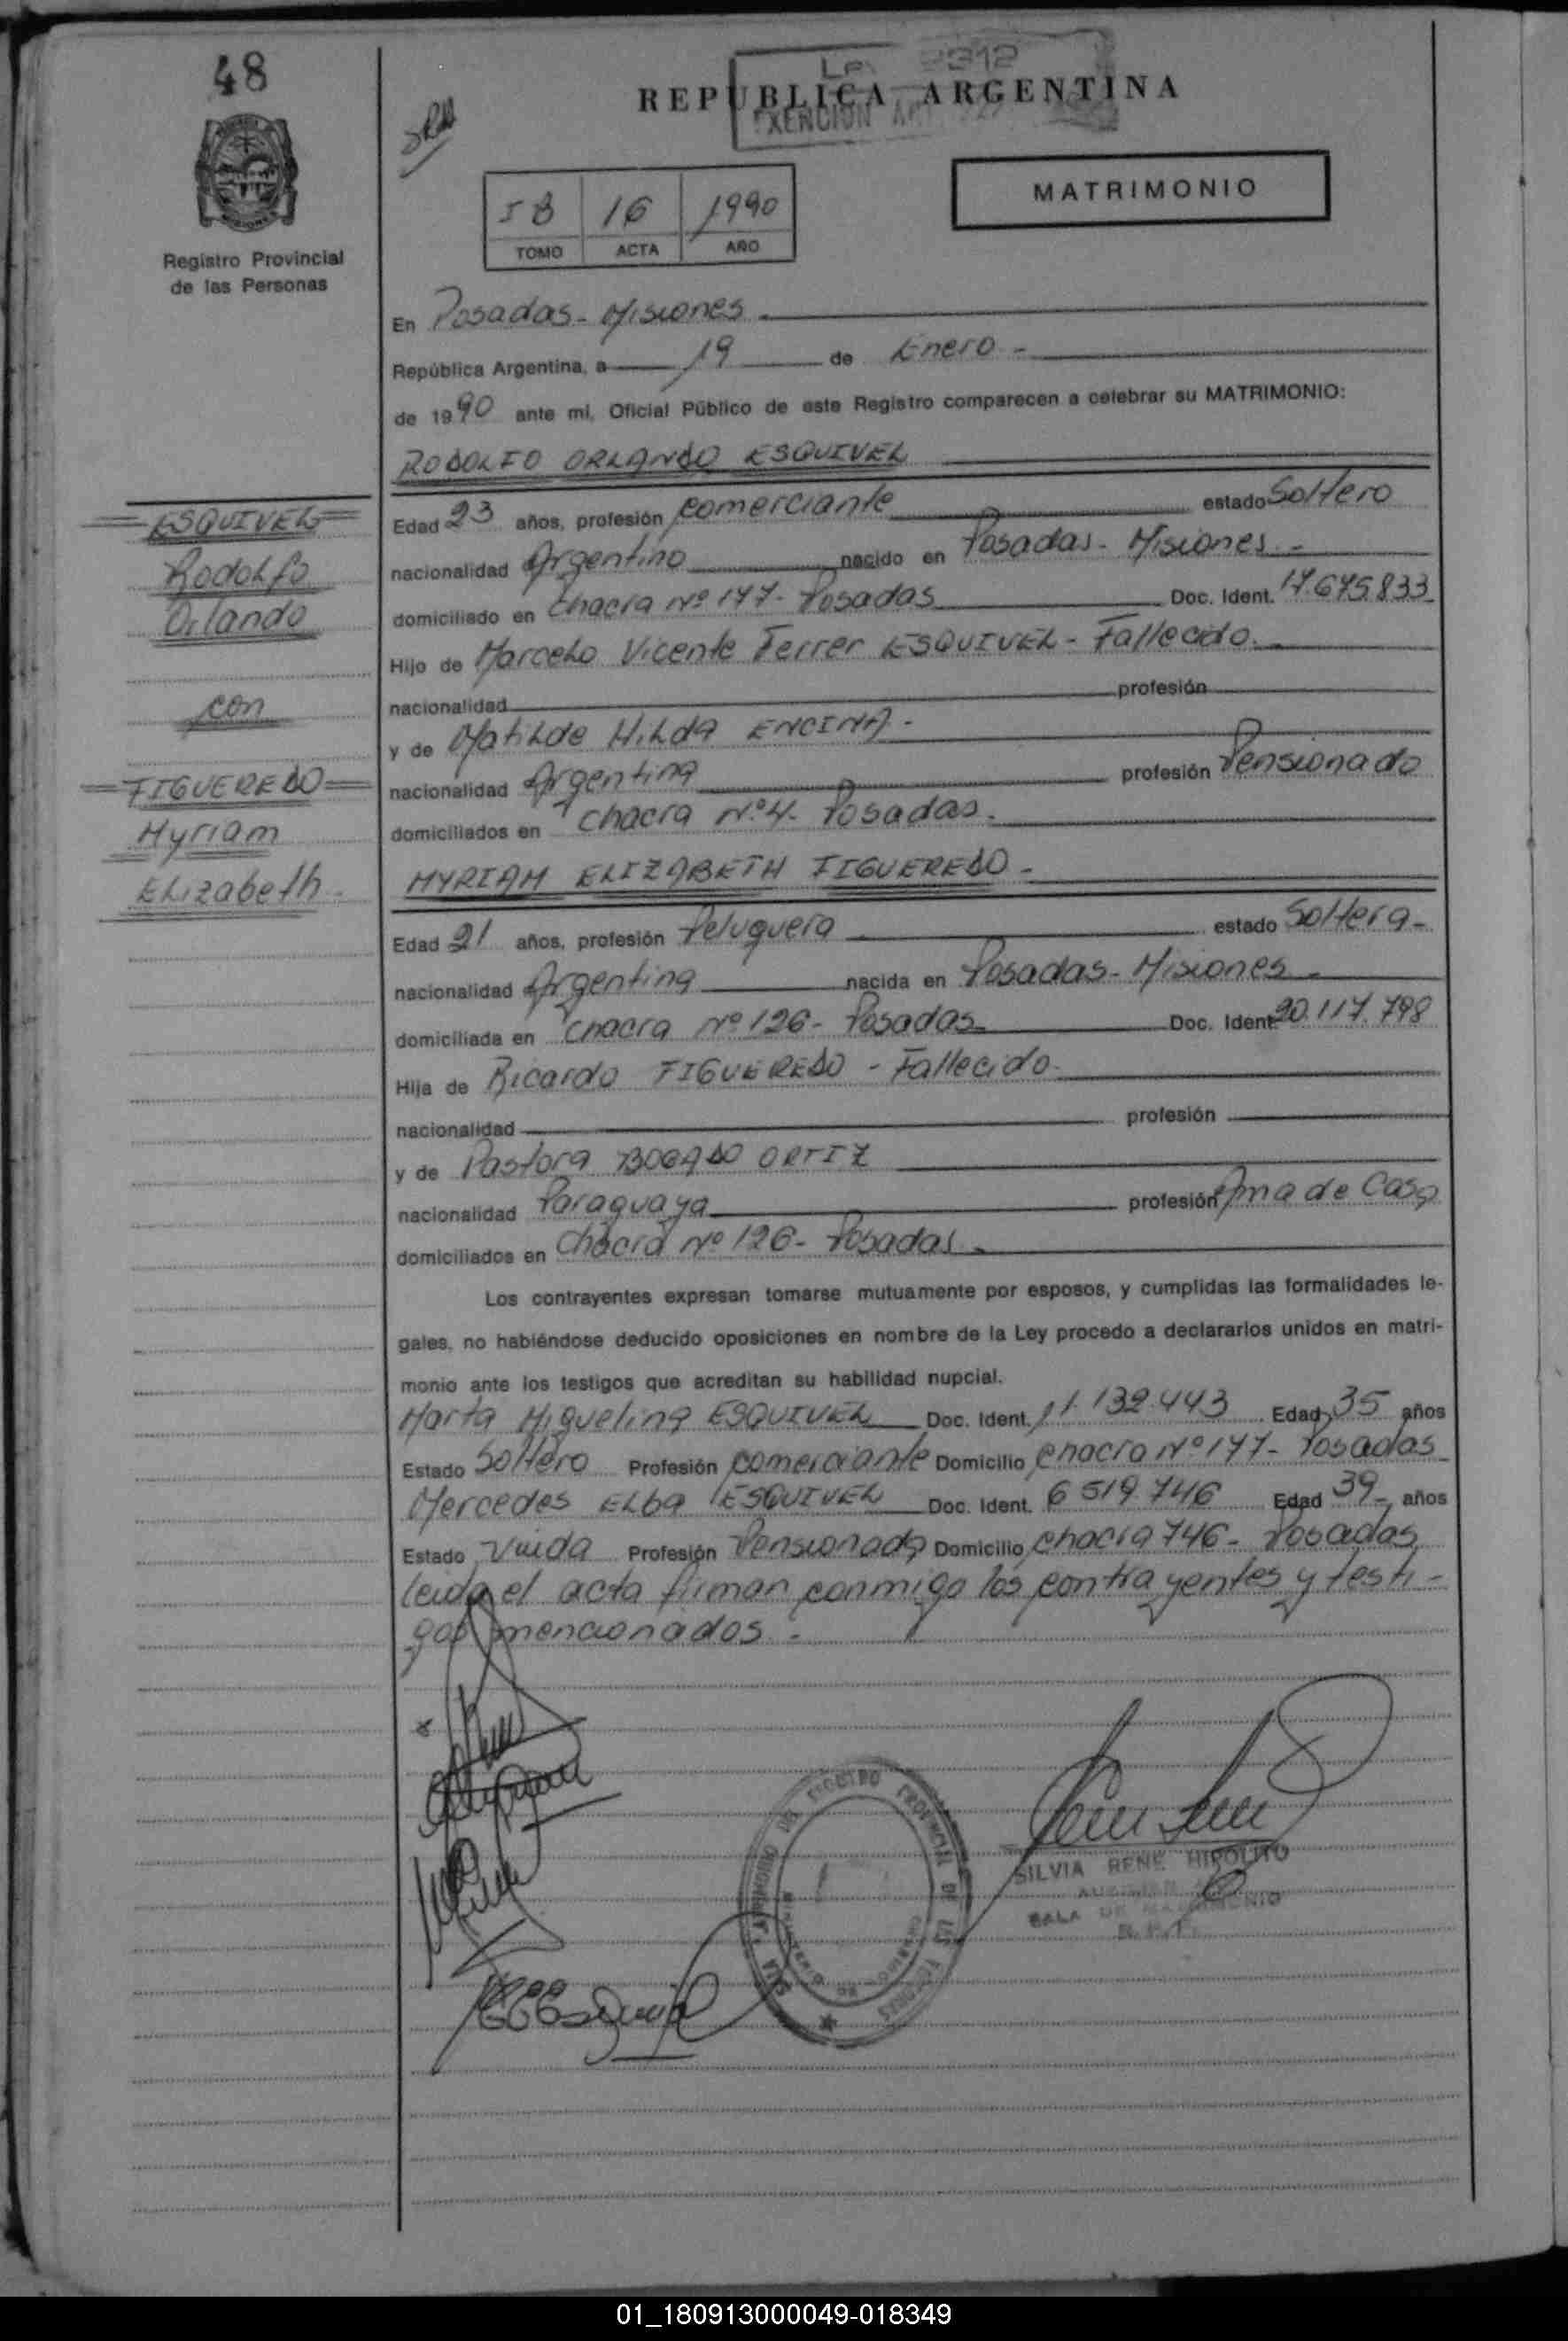 48
Ley 2312
REPUBLICA ARGENTINA
EXENCION ART
Registro Provincial
de las Personas
MATRIMONIO
I B 16 1990
TOMO ACTA AÑO
En Posadas - Misiones
República Argentina, a 19 de Enero -
de 1990 ante mi, Oficial Público de este Registro comparecen a celebrar su MATRIMONIO:
RODOLFO ORLANDO ESQUIVEL
ESQUIVEL
Rodolfo
Orlando
con
FIGUEREDO
Myriam
Elizabeth -
Edad 23 años, profesión comerciante estado Soltero
nacionalidad Argentino nacido en Posadas - Misiones -
domiciliado en Chacra Nº 177 - Posadas Doc. Ident. 17.675.833
Hijo de Marcelo Vicente Ferrer ESQUIVEL - Fallecido.
nacionalidad profesión
y de Matilde Hilda ENCINA -
nacionalidad Argentina profesión Pensionado
domiciliados en Chacra Nº 4 - Posadas.
MYRIAM ELIZABETH FIGUEREDO -
Edad 21 años, profesión Peluquera estado Soltera -
nacionalidad Argentina nacida en Posadas - Misiones -
domiciliada en Chacra Nº 126 - Posadas Doc. Ident. 20.117.798
Hija de Ricardo FIGUEREDO - Fallecido.
nacionalidad profesión
y de Pastora BOGADO ORTIZ
nacionalidad Paraguaya profesión Ama de Casa
domiciliados en Chacra Nº 126 - Posadas -
Los contrayentes expresan tomarse mutuamente por esposos, y cumplidas las formalidades le-
gales, no habiéndose deducido oposiciones en nombre de la Ley procedo a declararlos unidos en matri-
monio ante los testigos que acreditan su habilidad nupcial.
Marta Miguelina ESQUIVEL Doc. Ident. 11.132.443 Edad 35 años
Estado Soltero Profesión comerciante Domicilio chacra Nº 177 - Posadas
Mercedes Elba ESQUIVEL Doc. Ident. 6 519.746 Edad 39 - años
Estado Viuda Profesión Pensionada Domicilio chacra 746 - Posadas
leida el acta firman conmigo los contrayentes y testi-
gos mencionados -
SILVIA RENE HIPOLITO
SALA DE MATRIMONIO
01_180913000049-018349